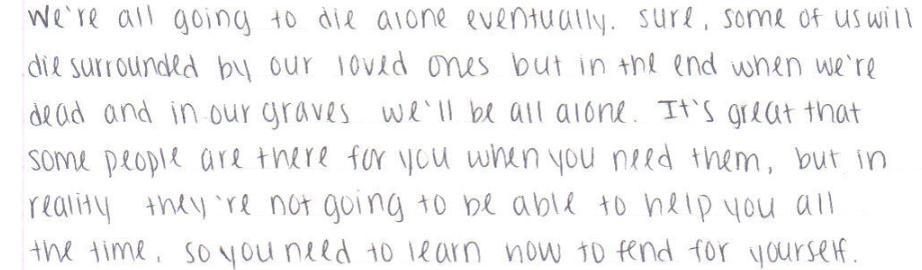 We're all going to die alone eventually. sure, some of us will
die surrounded by our loved ones but in the end when we're
dead and in our graves we'll be all alone. It's great that
some people are there for you when you need them, but in
reality they're not going to be able to help you all
the time, so you need to learn how to fend for yourself.